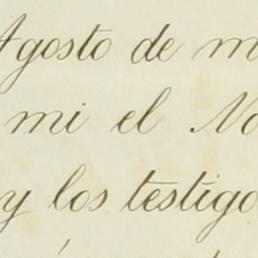 Agosto de m
mi el No
y los testigo